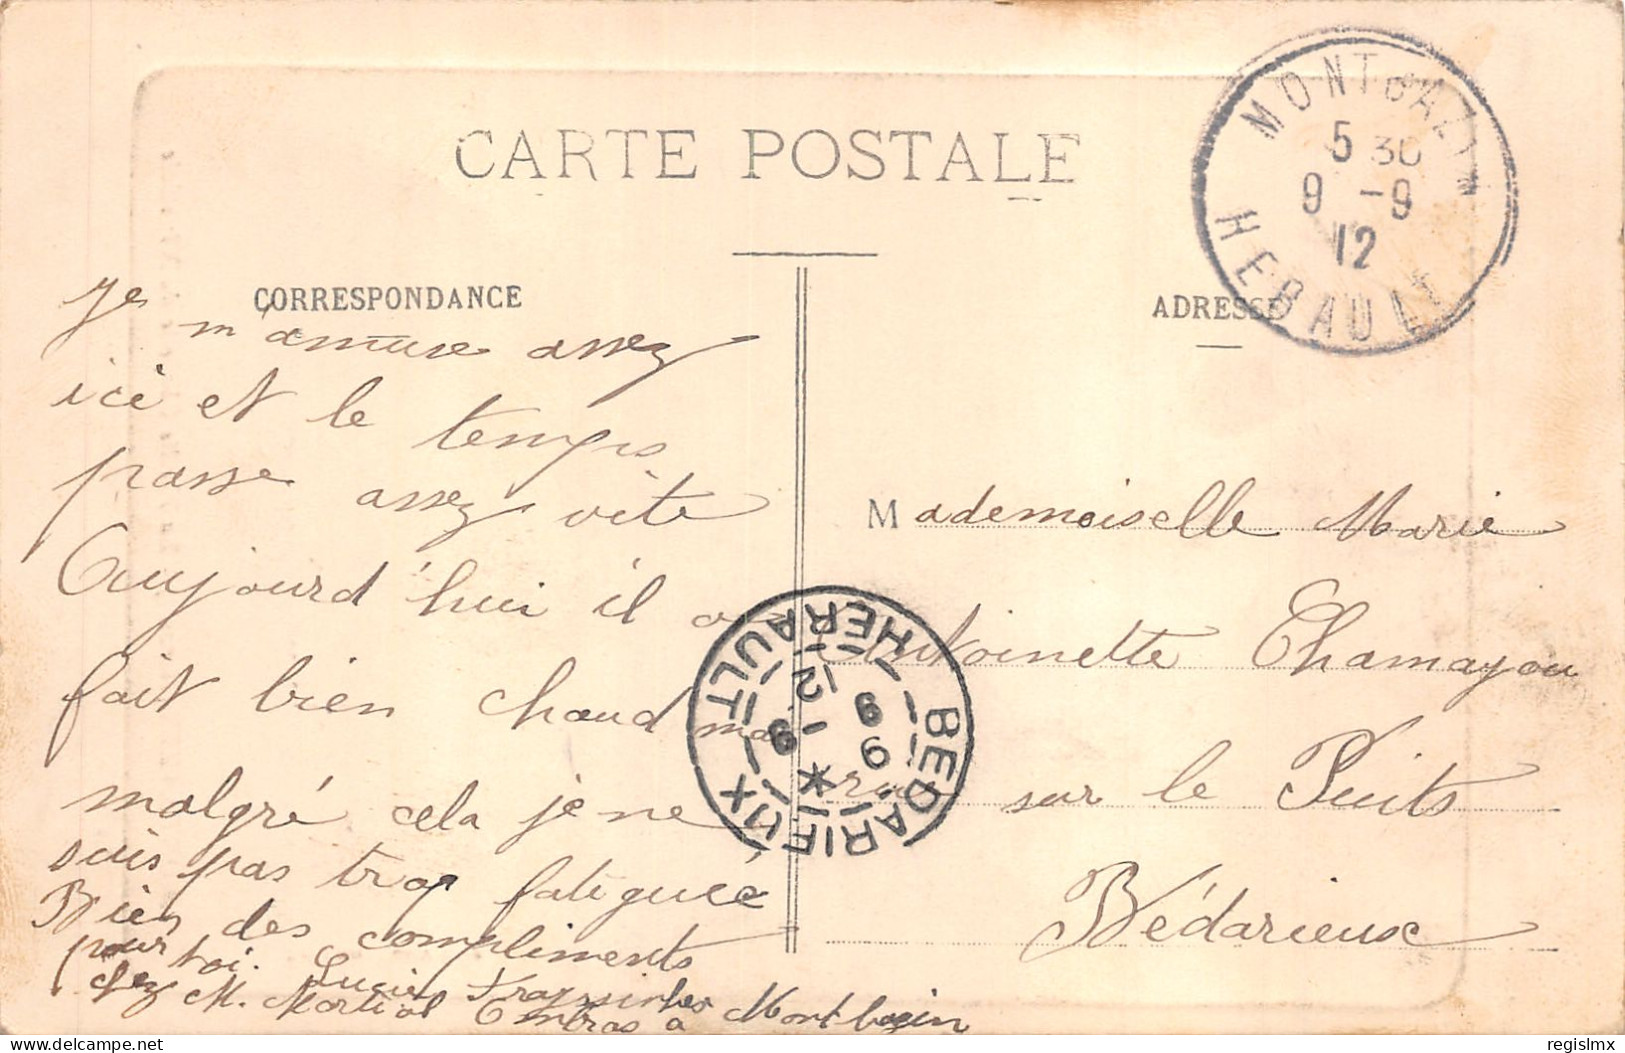 CARTE POSTALE
CORRESPONDANCE
Je
m'amuse assez
ici et le temps
passe assez vite
Aujourd'hui il a
fait bien chaud mais
malgré cela je ne
suis pas trop fatiguée
Bien des compliments
pour toi. Lucie
chez M. Martial à Montbazin
ADRESSE
Mademoiselle Marie
Antoinette Chamayou
rue sur le Puits
Bédarieux
MONTBAZIN
5 30
9 -9
12
HERAULT
BÉDARIEUX
6 9
9 -
12
HÉRAULT
delcampe.net
regislmx